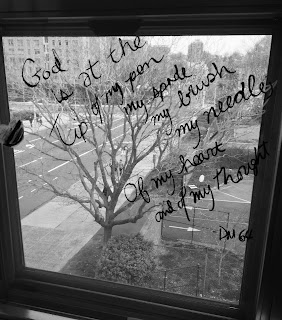 God is at the
tip of my pen
my spade
my brush
my needle
Of my heart
and of my thought